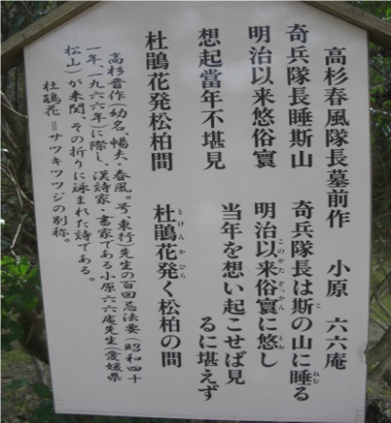 高杉春風隊長墓前作　小原　六六庵
奇兵隊長睡斯山　奇兵隊長は斯の山に睡る
明治以来悠俗寰　明治以来俗寰に悠し
想起當年不堪見　当年を想い起こせば見
るに堪えず
杜鵑花発松柏間　杜鵑花発く松柏の間
高杉晋作(幼名、暢夫・春風。号、東行)先生の百回忌法要(昭和四十
一年、一九六六年)に際し、漢詩家・書家である小原六六庵先生(愛媛県
松山)が来関、その折りに詠まれた詩である。
杜鵑花＝サツキツツジの別称。